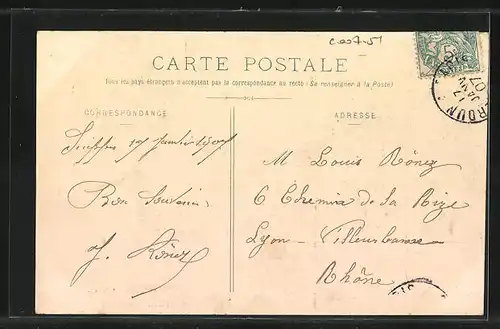 C 007-51
CARTE POSTALE
Tous les pays étrangers n'acceptent pas la correspondance au recto (Se renseigner à la Poste)
CORRESPONDANCE
ADRESSE
17 Janvier 1907
Bon Souvenir
J. Rónez
M Louis Rónez
6 Chemin de la Rize
Lyon - Villeurbanne
Rhône
17
JANV
07